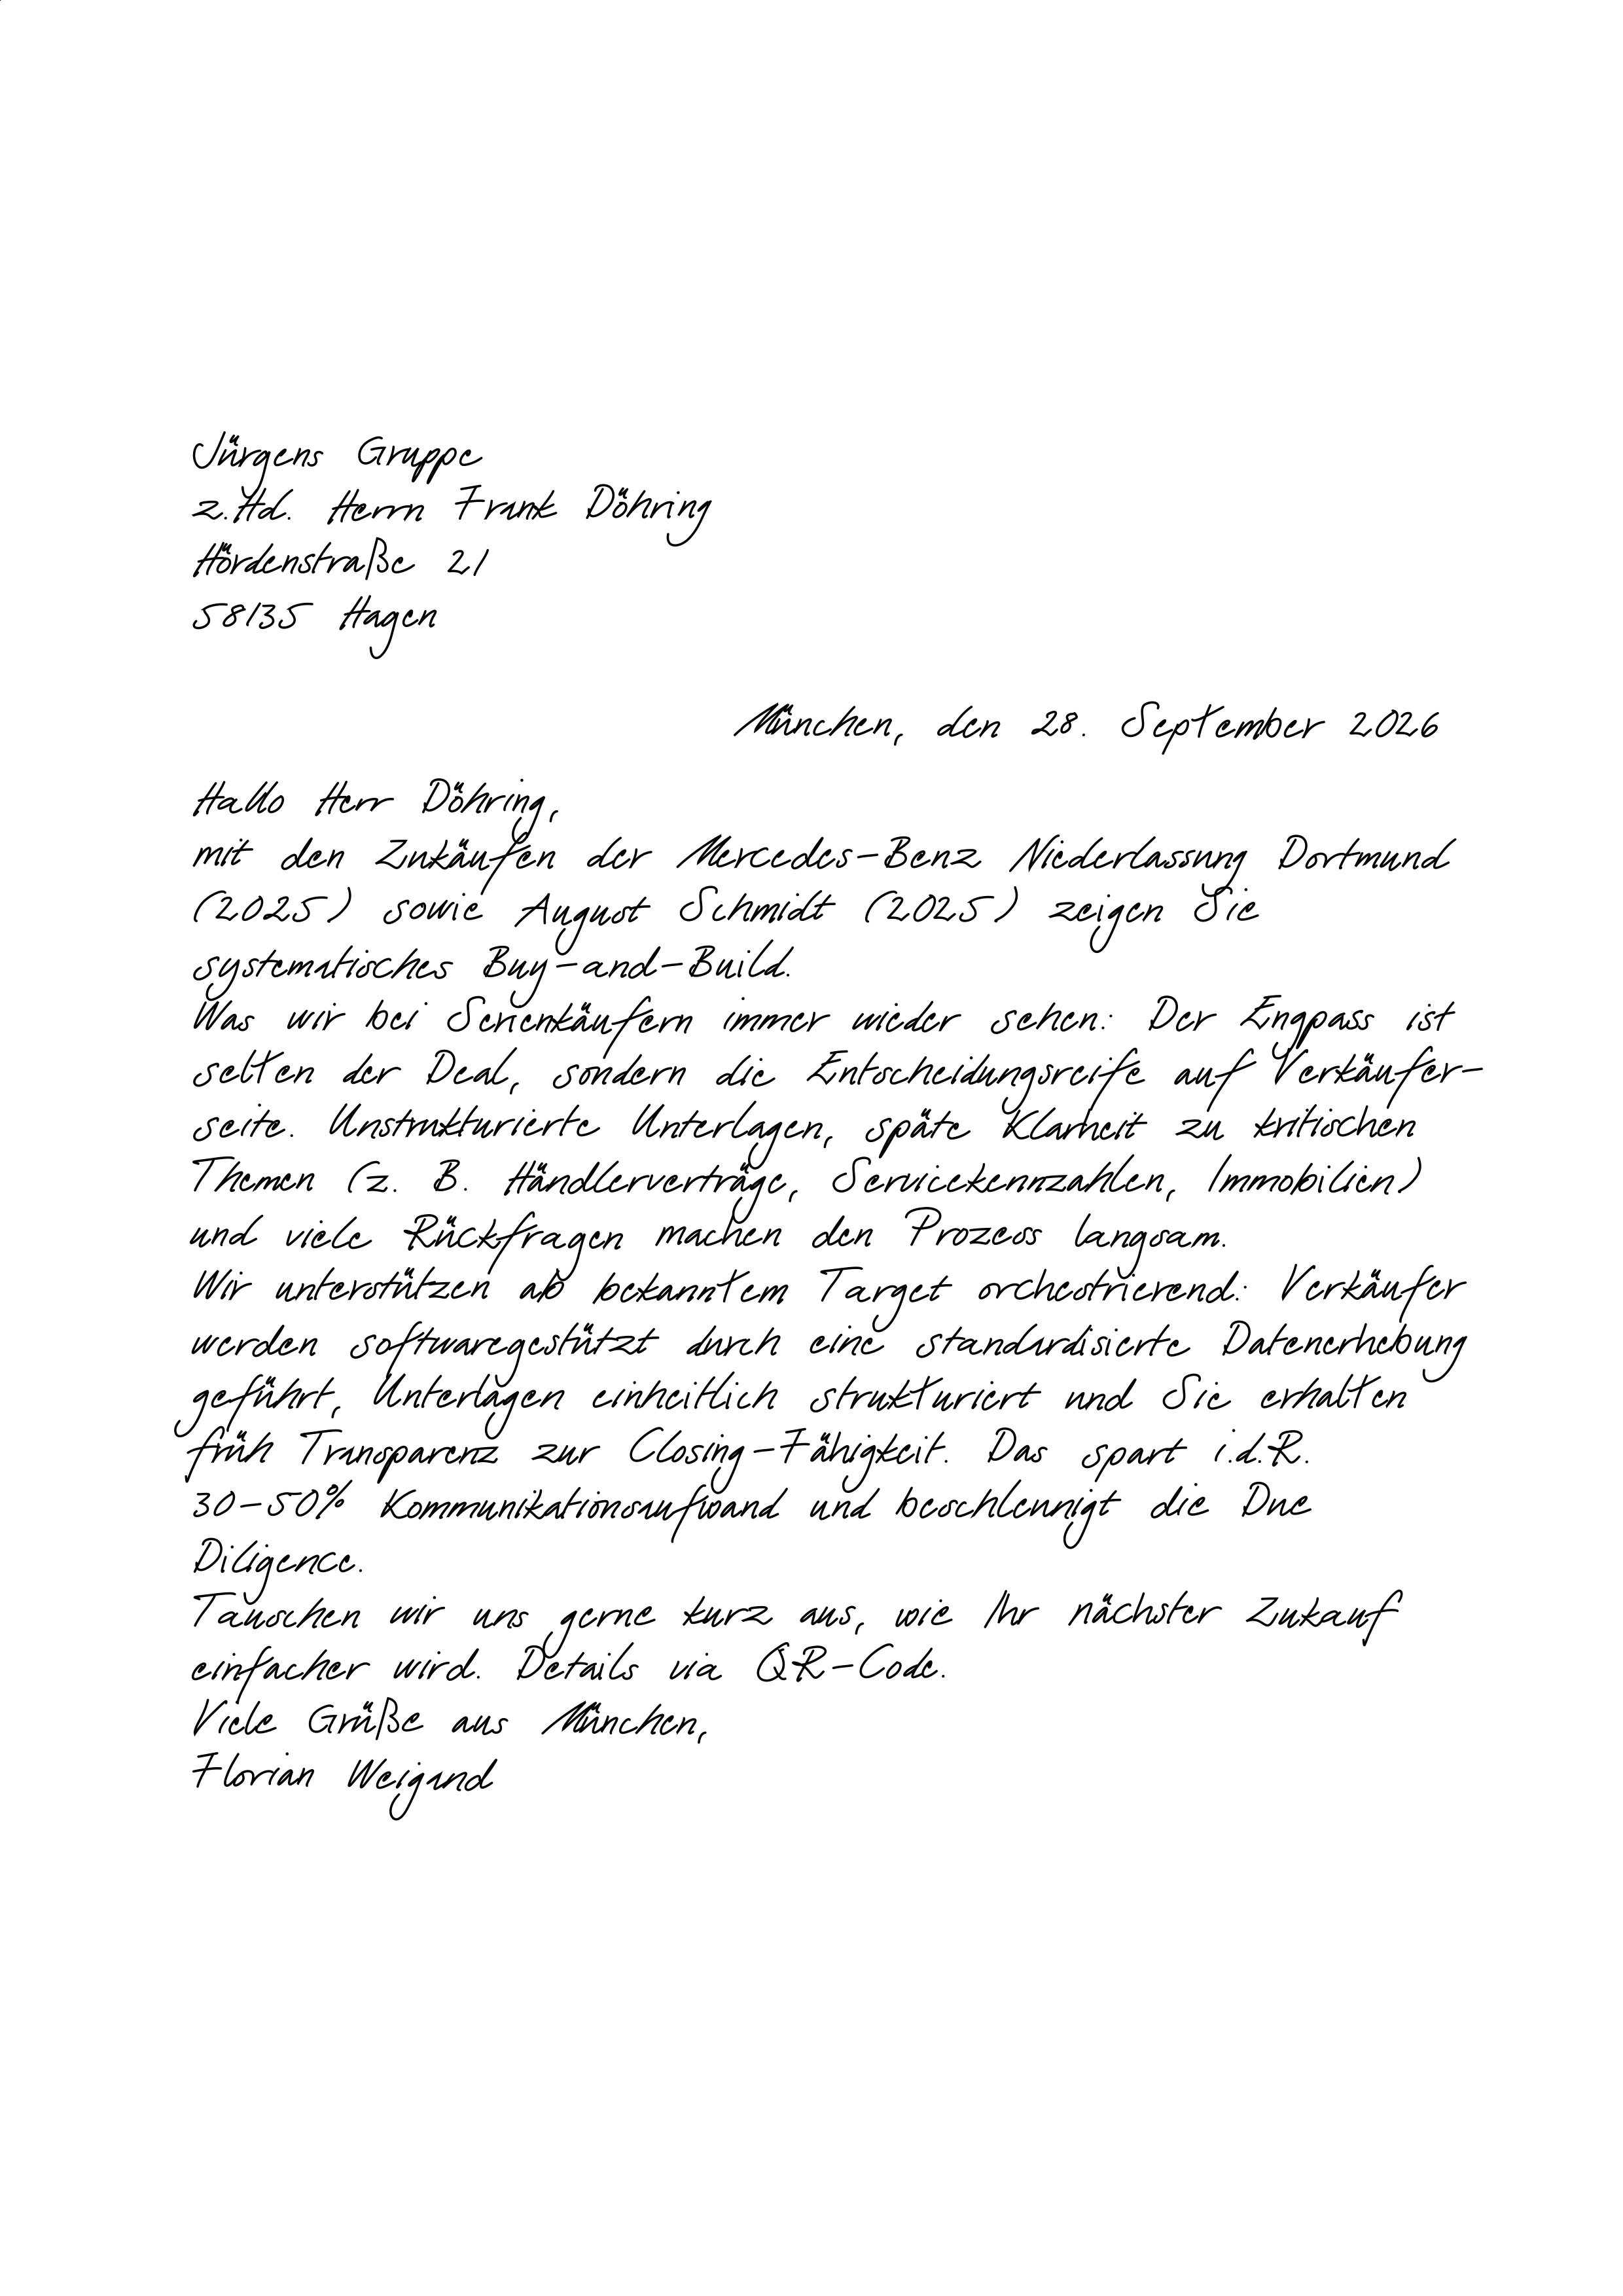 Jürgens Gruppe
z.Hd. Herrn Frank Döhring
Hördenstraße 21
58135 Hagen
München, den 28. September 2026
Hallo Herr Döhring,
mit den Zukäufen der Mercedes-Benz Niederlassung Dortmund
(2025) sowie August Schmidt (2025) zeigen Sie
systematisches Buy-and-Build.
Was wir bei Serienkäufern immer wieder sehen: Der Engpass ist
selten der Deal, sondern die Entscheidungsreife auf Verkäufer-
seite. Unstrukturierte Unterlagen, späte Klarheit zu kritischen
Themen (z. B. Händlerverträge, Servicekennzahlen, Immobilien)
und viele Rückfragen machen den Prozess langsam.
Wir unterstützen ab bekanntem Target orchestrierend: Verkäufer
werden softwaregestützt durch eine standardisierte Datenerhebung
geführt, Unterlagen einheitlich strukturiert und Sie erhalten
früh Transparenz zur Closing-Fähigkeit. Das spart i.d.R.
30-50% Kommunikationsaufwand und beschleunigt die Due
Diligence.
Tauschen wir uns gerne kurz aus, wie Ihr nächster Zukauf
einfacher wird. Details via QR-Code.
Viele Grüße aus München,
Florian Weigand